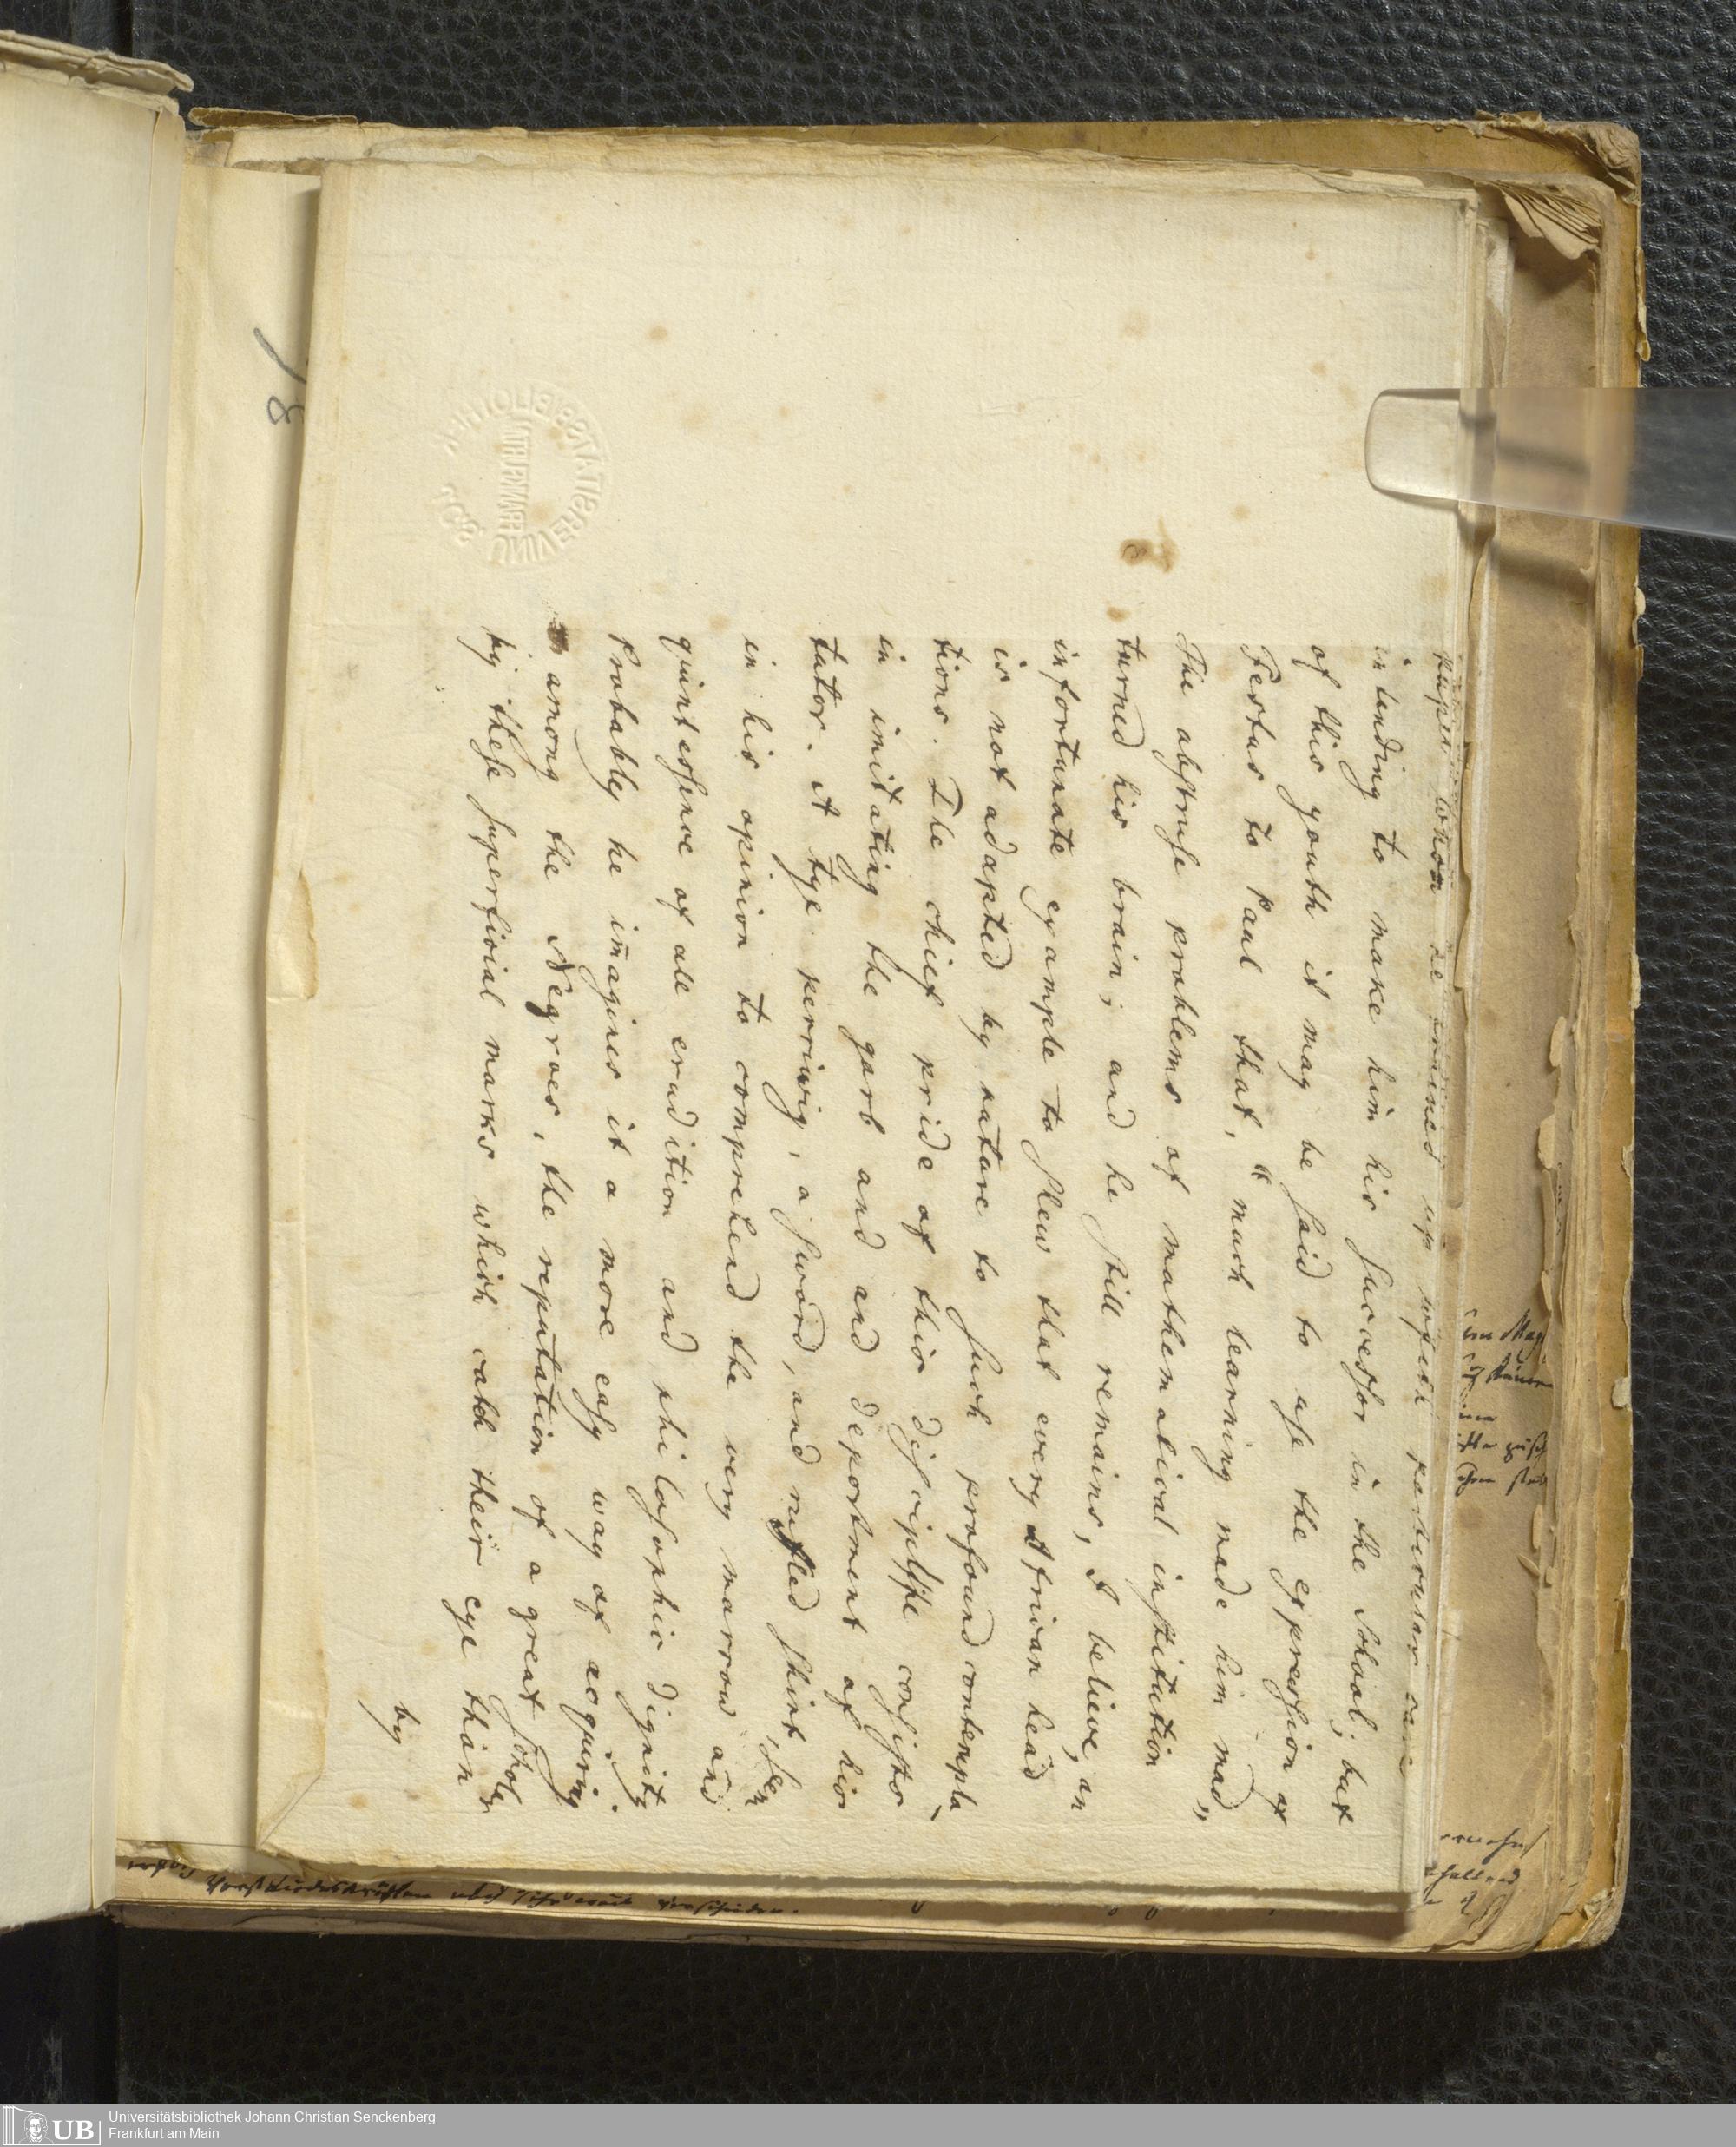 pupil whom he trained up with particular care
intending to make him his Succeſsor in the School; but
of this youth it may be ſaid to uſe the expreſsion of
Festus to Paul that, "much learning made him mad"
The abſtruſe problems of mathematical inſtitution
turned his brain; and he ſtill remains, I believe, an
infortunate example to ſhew that every African head
is not adapted by nature to ſuch profound contempla
tions. The chief pride of this diſciple conſiſts
in imitating the garb and deportment of his
tutor. A tye perriwig, a ſword, and rufled ſhirt, ſeem
in his opinion to comprehend the very marrow and
quinteſsence of all erudition and philoſophic dignity.
Probably he imagines it a more eaſy way of acquiring,
among the Negroes, the reputation of a great ſcholar
by theſe ſuperficial marks which catch their eye than
by
81
UNIVERSITÄTSBIBLIOTHEK
FRANKFURT
UB
Universitätsbibliothek Johann Christian Senckenberg
Frankfurt am Main